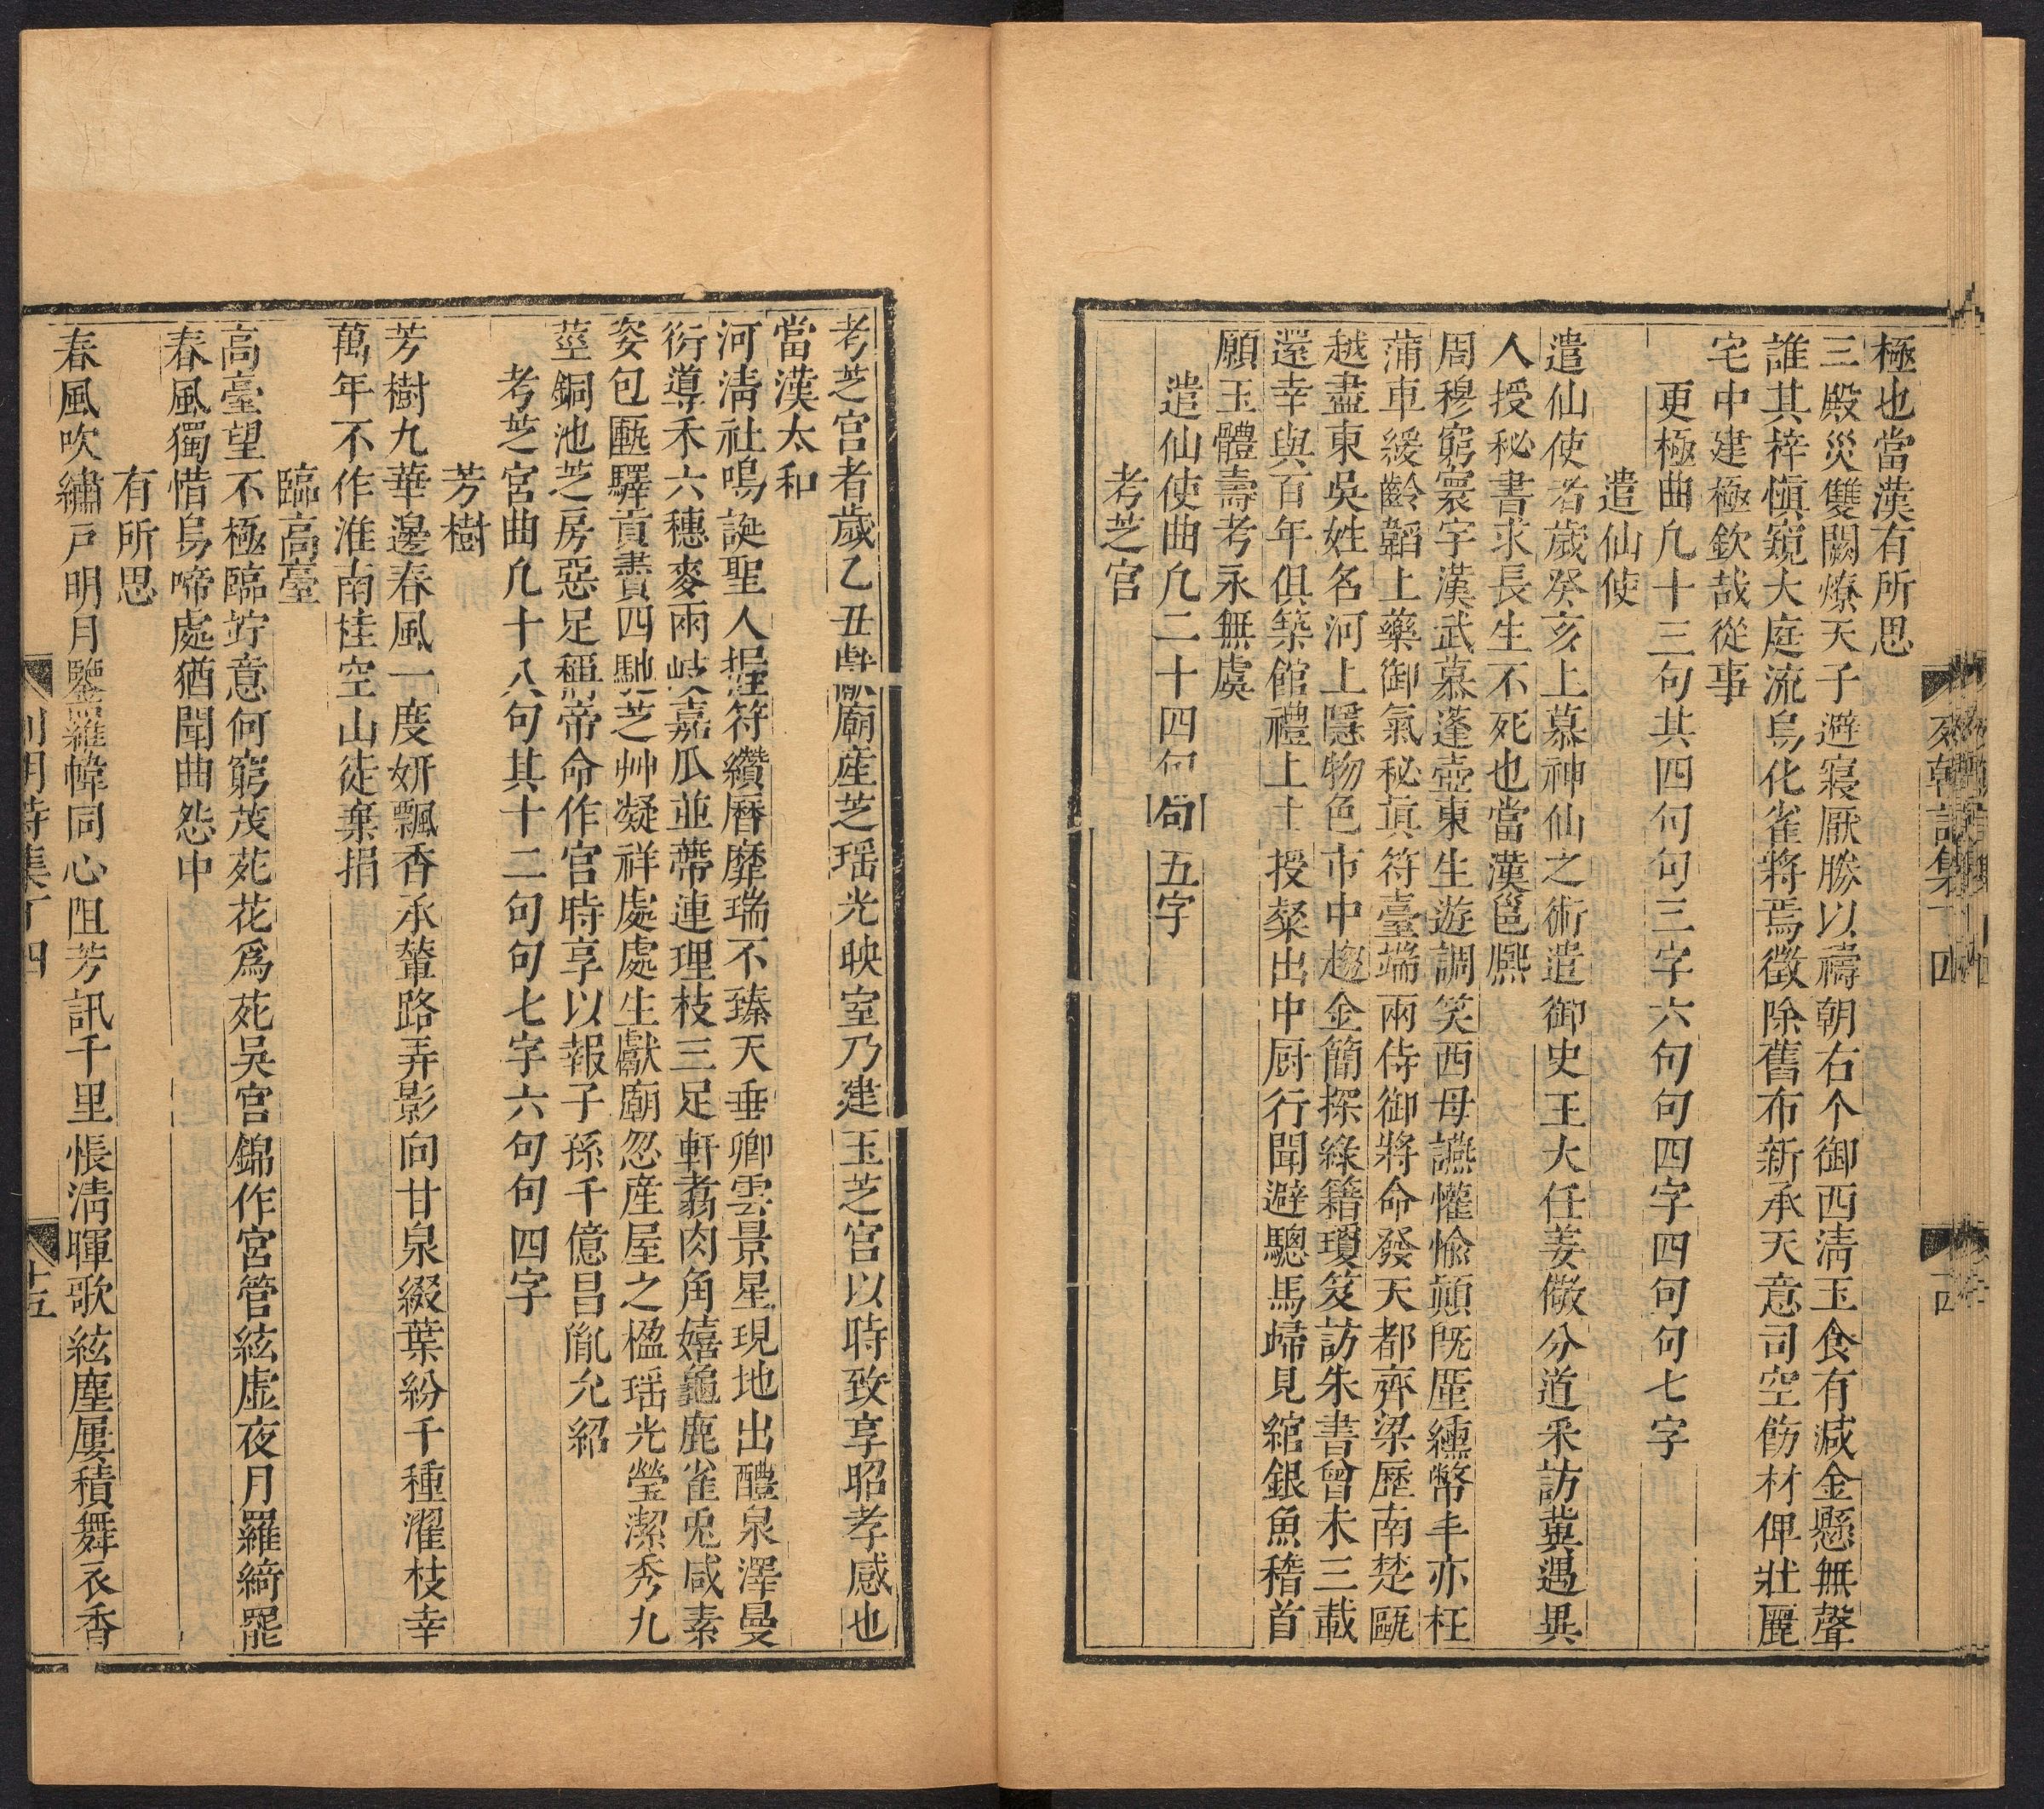 極也當漢有所思
三殿災雙闕燎天子避寢厭勝以禱朝右个御西清玉食有減金懸無聲
誰其梓慎窺大庭流烏化雀將焉徵除舊布新承天意司空飭材俾壯麗
宅中建極欽哉從事
更極曲凡十三句其四句句三字六句句四字四句句七字
遣仙使
遣仙使者歲癸亥上慕神仙之術遣御史王大任姜儆分道采訪冀遇異
人授秘書求長生不死也當漢邕熈
周穆窮寰宇漢武慕蓬壺東生遊調笑西母讌懽愉頴既厓纁幣丰亦枉
蒲車緩齡韜上藥御氣秘眞符臺端兩侍御將命發天都齊梁歷南楚甌
越盡東吳姓名河上隱物色市中趨金簡探綠籍瓊笈訪朱書曾未三載
還幸與百年俱築館禮上士授粲出中厨行聞避驄馬歸見綰銀魚稽首
願玉體壽考永無虞
遣仙使曲凡二十四句句五字
考芝宫
考芝宫者歲乙丑獻廟産芝瑶光映室乃建玉芝宫以時致享昭孝感也
當漢太和
河淸社鳴誕聖人握符纘曆靡瑞不臻天垂卿雲景星現地出醴泉澤曼
衍導禾六穗麥兩岐嘉瓜並蔕連理枝三足軒翥肉角嬉龜鹿雀兎咸素
姿包匭驛貢賮四馳芝艸凝祥處處生獻廟忽産屋之楹瑶光瑩潔秀九
莖銅池芝房惡足稱帝命作宫時享以報子孫千億昌胤允紹
考芝宫曲凡十八句其十二句句七字六句句四字
芳樹
芳樹九華邊春風一度妍飄香承輦路弄影向甘泉綴葉紛千種濯枝幸
萬年不作淮南桂空山徒棄捐
臨高臺
高臺望不極臨竚意何窮茂苑花爲苑吳宫錦作宮管絃虚夜月羅綺罷
春風獨惜烏啼處猶聞曲怨中
有所思
春風吹繡戸明月鑒羅幃同心阻芳訊千里悵淸暉歌絃塵屢積舞衣香